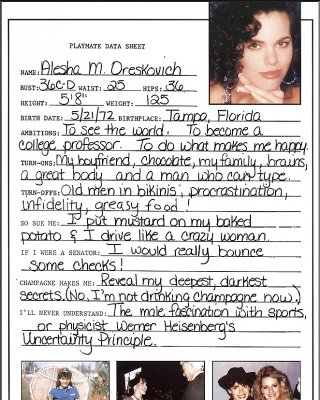 PLAYMATE DATA SHEET
NAME: Alesha M. Oreskovich
BUST: 36C-D WAIST: 25 HIPS: 36
HEIGHT: 5'8" WEIGHT: 125
BIRTH DATE: 5/21/72 BIRTHPLACE: Tampa, Florida
AMBITIONS: To see the world. To become a
college professor. To do what makes me happy.
TURN-ONS: My boyfriend, chocolate, my family, brains,
a great body and a man who can type.
TURN-OFFS: Old men in bikinis, procrastination,
infidelity, greasy food!
SO SUE ME: I put mustard on my baked
potato & I drive like a crazy woman.
IF I WERE A SENATOR: I would really bounce
some checks!
CHAMPAGNE MAKES ME: Reveal my deepest, darkest
secrets. (No, I'm not drinking champagne now.)
I'LL NEVER UNDERSTAND: The male fascination with sports,
or physicist Werner Heisenberg's
Uncertainty Principle.